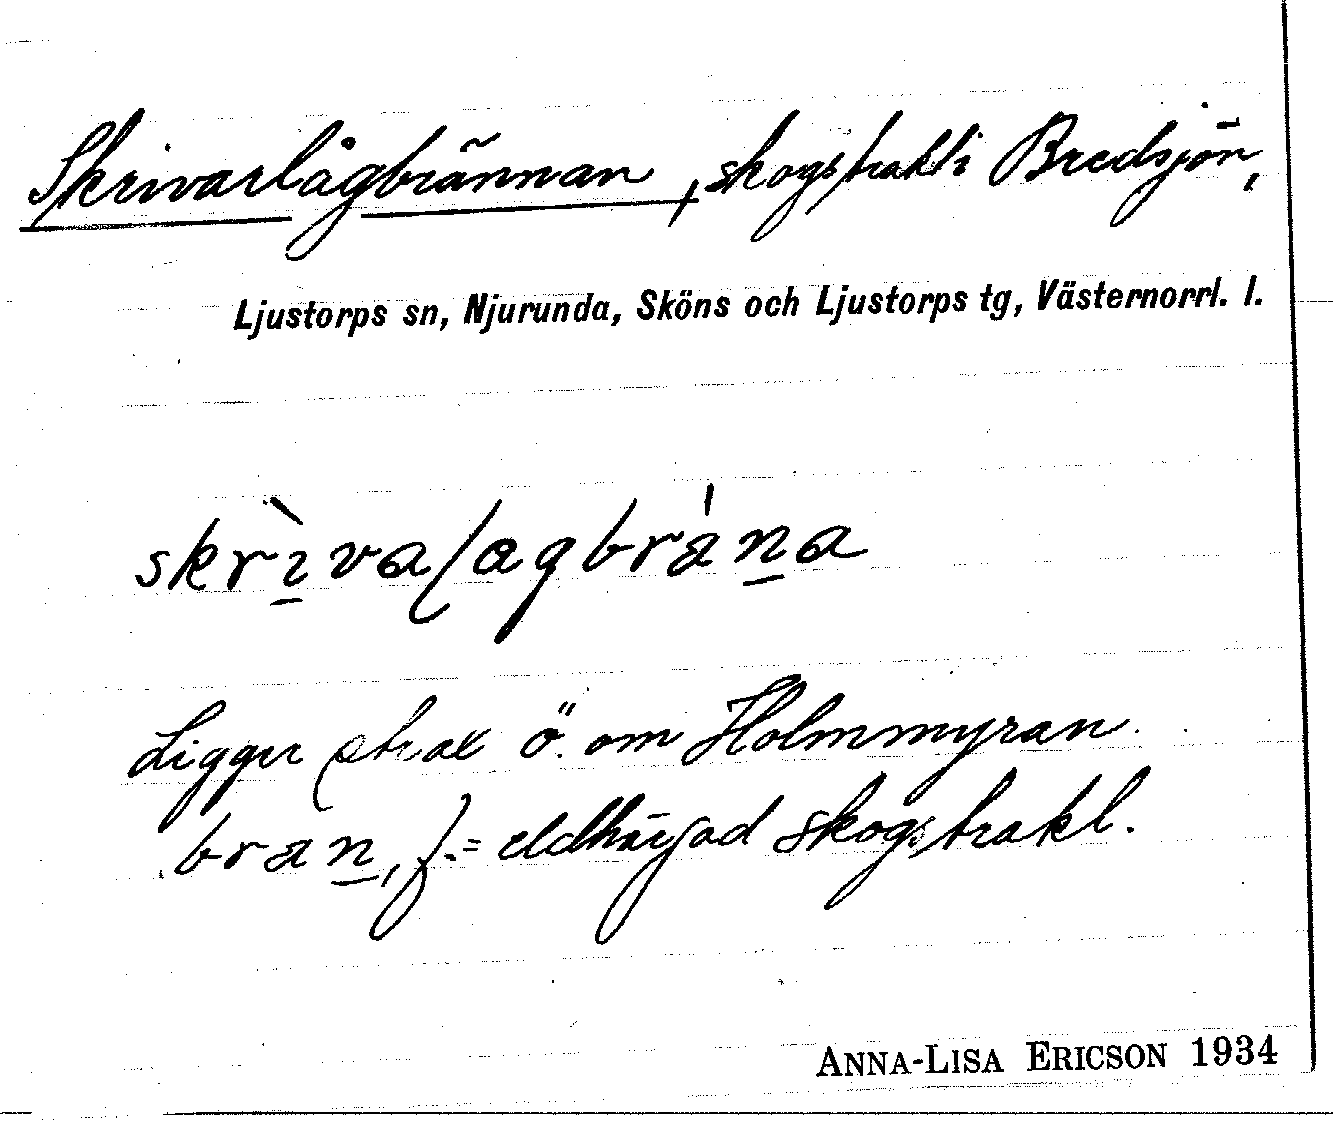 Skrivarlågbrännan, skogstrakt i Bredsjön,
Ljustorps sn, Njurunda, Sköns och Ljustorps tg, Västernorrl. l.
skrìvaʃagbrána
Ligger strax ö. om Holmmyran.
bran, f. = eldhärjad skogstrakt.
ANNA-LISA ERICSON 1934